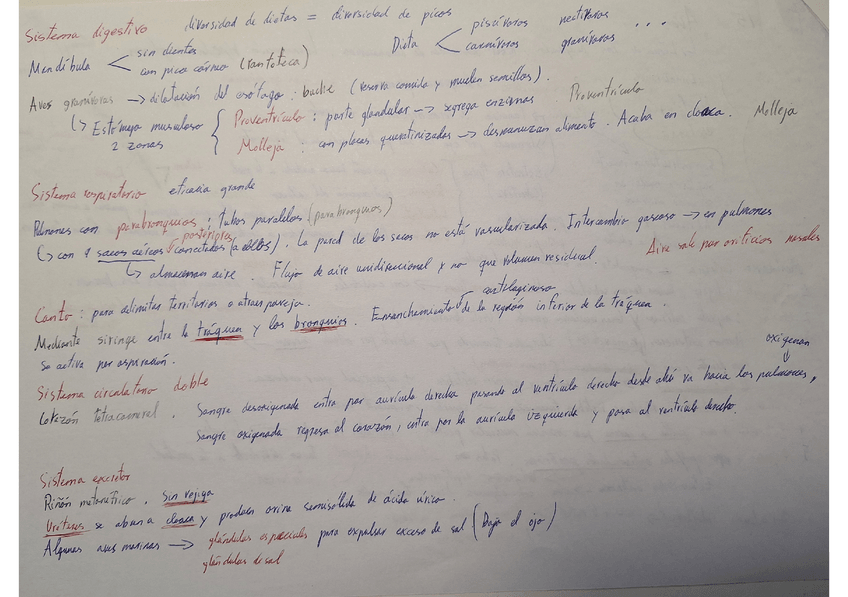 Sistema digestivo diversidad de dietas = diversidad de picos
Mandíbula < sin dientes
con pico córneo (ranfoteca)
Dieta < piscívoros nectívoros
carnívoros granívoros ...
Aves granívoras → dilatación del esófago: buche (reserva comida y muelen semillas).
↳ Estómago musculoso
2 zonas
{ Proventrículo: parte glandular → segrega enzimas Proventrículo
Molleja: con placas queratinizadas → desmenuzan alimento. Acaba en cloaca. Molleja
Sistema respiratorio eficacia grande
Pulmones con parabronquios: tubos paralelos (parabronquios)
posteriores
↳ con 9 sacos aéreos (conectados a ellos). La pared de los sacos no está vascularizada. Intercambio gaseoso → en pulmones
↳ almacenan aire. Flujo de aire unidireccional x no que volumen residual. Aire sale por orificios nasales
Canto: para delimitar territorios o atraer pareja.
cartilaginoso
Mediante siringe entre la tráquea y los bronquios. Ensanchamiento de la región inferior de la tráquea.
Se activa por aspiración.
Sistema circulatorio doble
oxigenan
Corazón tetracameral. Sangre desoxigenada entra por aurícula derecha pasando al ventrículo derecho desde ahí va hacia los pulmones,
Sangre oxigenada regresa al corazón, entra por la aurícula izquierda y pasa al ventrículo derecho.
Sistema excretor
Riñón metanéfrico. Sin vejiga
Uréteres se abren a cloaca y producen orina semisólida de ácido úrico.
Algunas aves marinas → glándulas especiales para expulsar exceso de sal (Bajo el ojo)
glándulas de sal